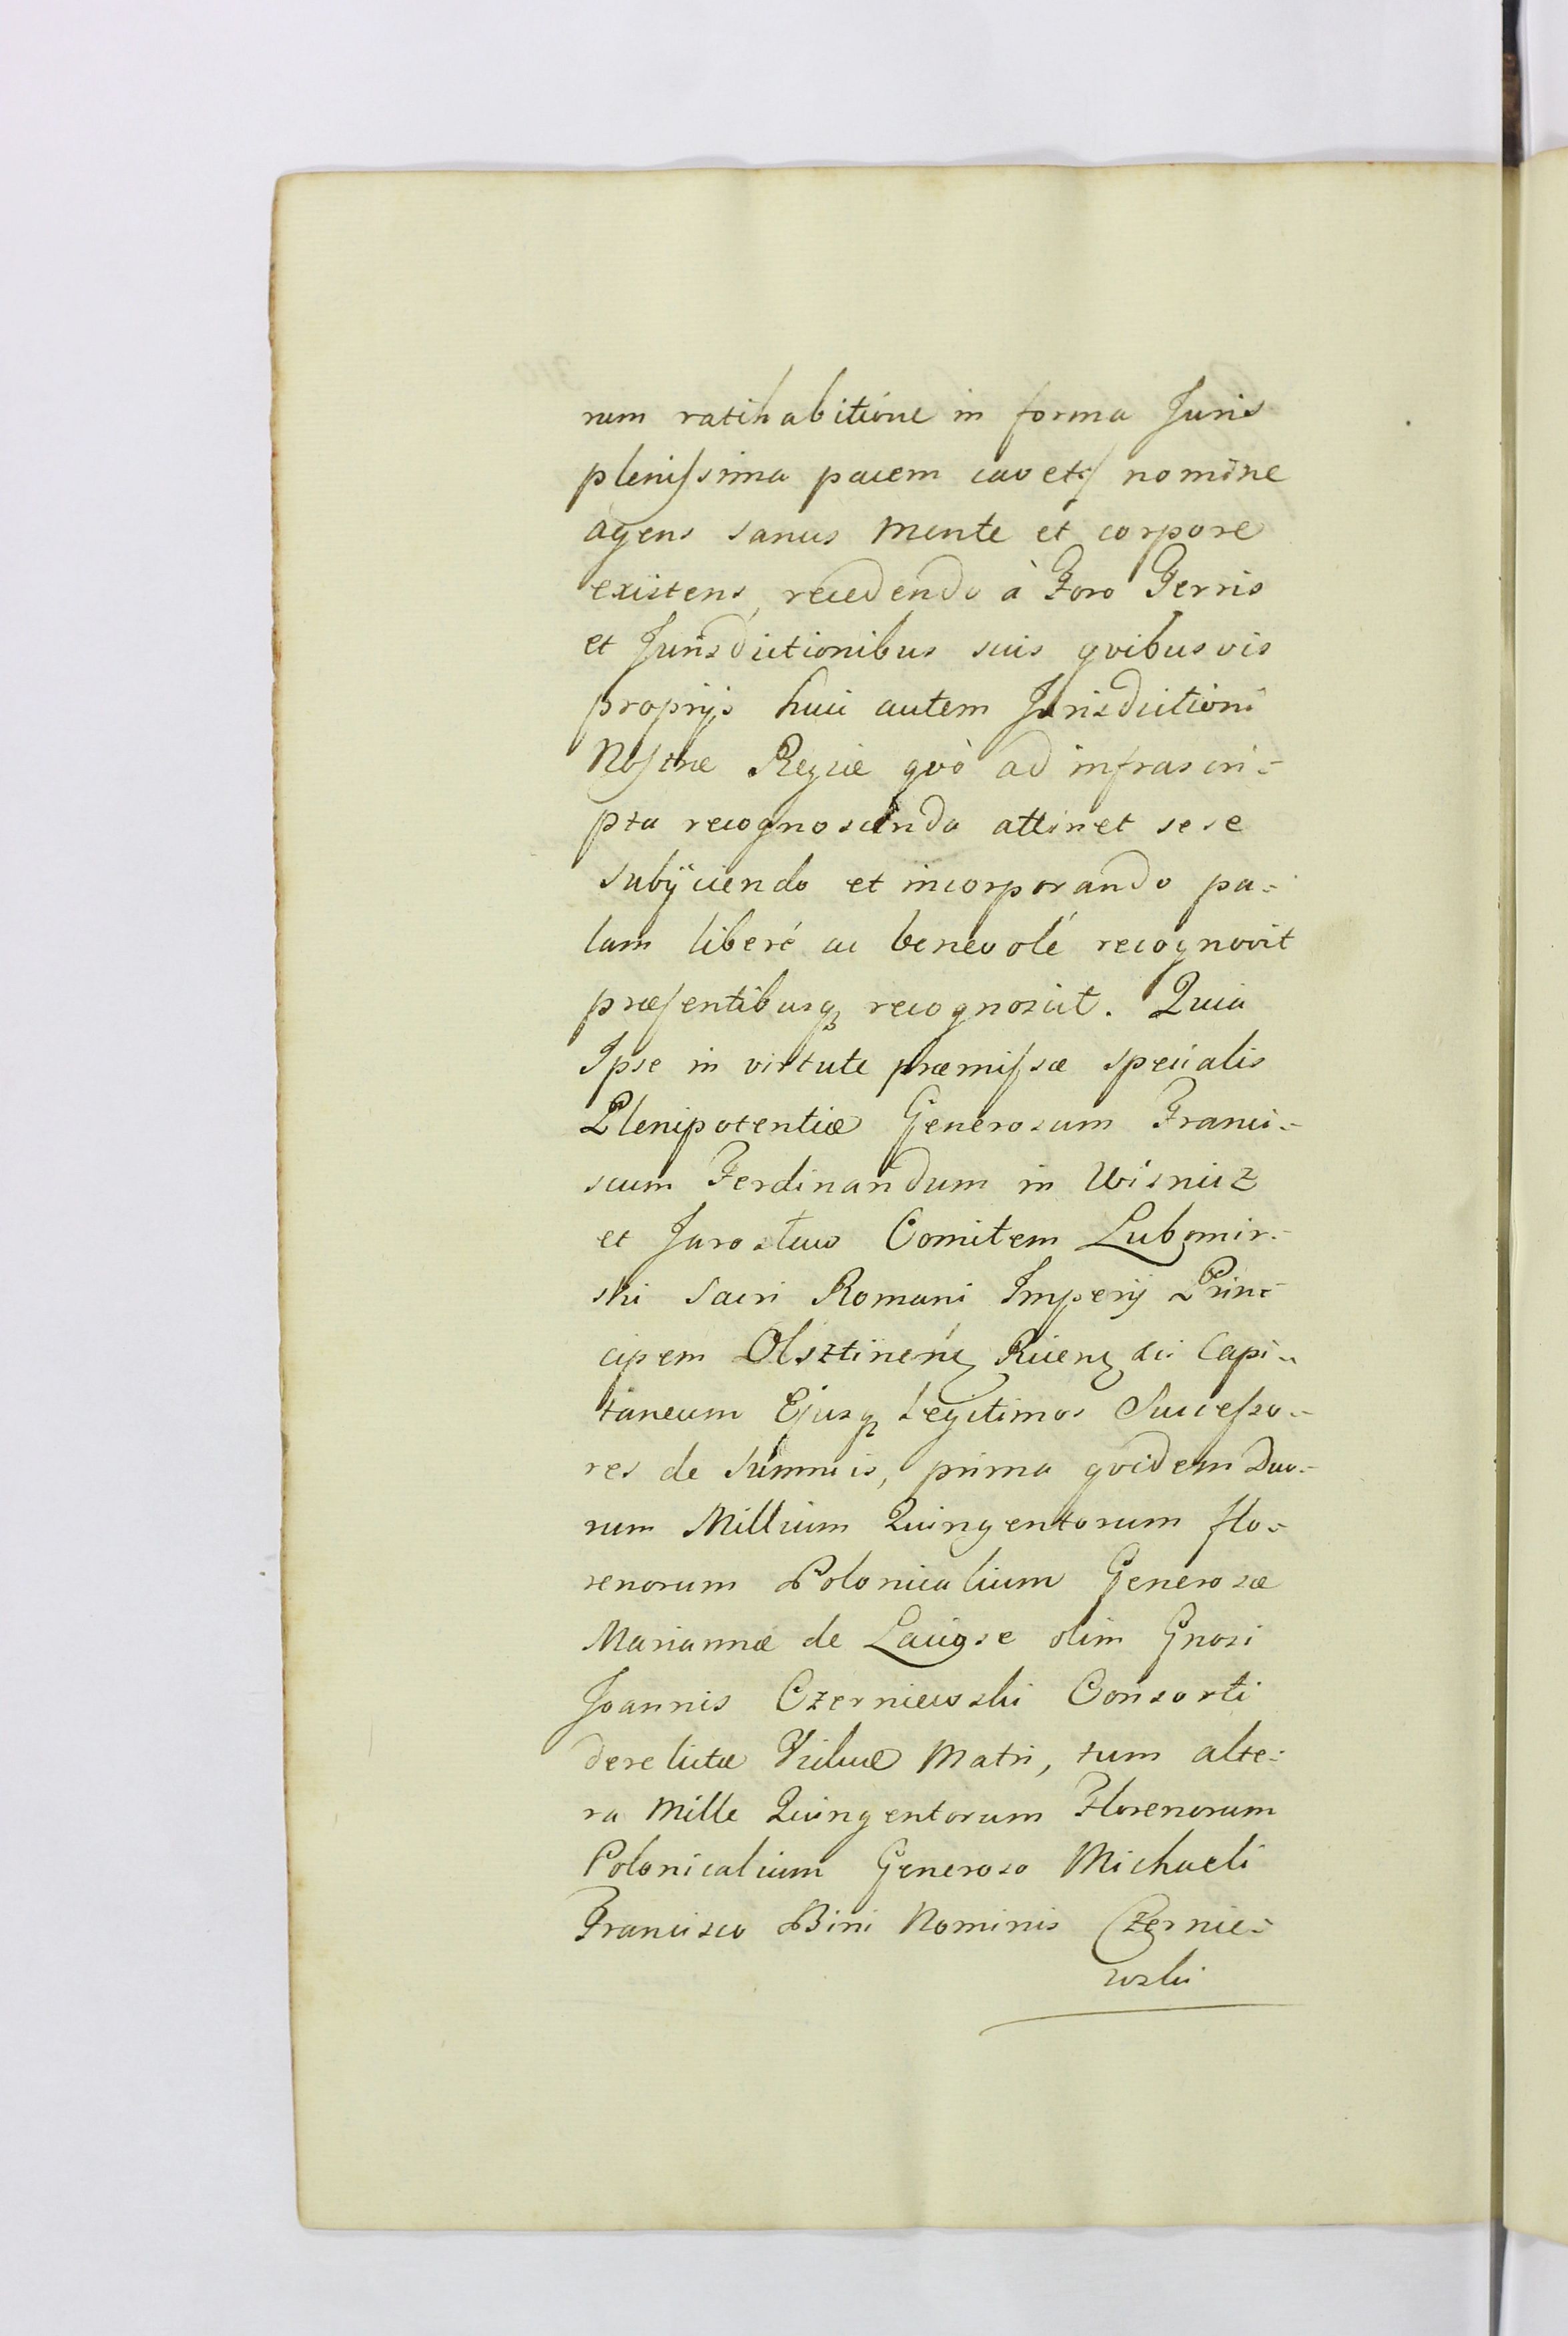 rum ratihabitione in forma Juris
plenissima pacem cavetq nomine
agens sanus mente et corpore
existens, recedendo à Foro Terris
et Jurisdictionibus suis qvibusvis
proprijs huic autem Jurisdictioni
Nostræ Regiæ qvò ad infrascri=
pta recognoscenda attinet sese
subijciendo et incorporando pa=
lam liberé ac benevolé recognovit
præsentibusq recognoscit. Quia
Ipse in virtute præmissæ specialis
Plenipotentiæ Generosum Franci=
scum Ferdinandum in Wisnicz
et Jarosław Comitem Lubomir=
ski Sacri Romani Imperij Prin=
cipem Olsztinen Ricen &c: Capi=
taneum Ejusq Legitimos Successo=
res de Summis, prima qvidem Duo=
rum Millium Quingentorum flo=
renorum Polonicalium Generosæ
Mariannæ de olim Gnosi
Joannis Czerniewski Consorti
derelictæ Viduæ Matri, tum alte=
ra Mille Quingentorum Florenorum
Polonicalium Generoso Michaeli
Francisco Bini Nominis Czernie=
wski